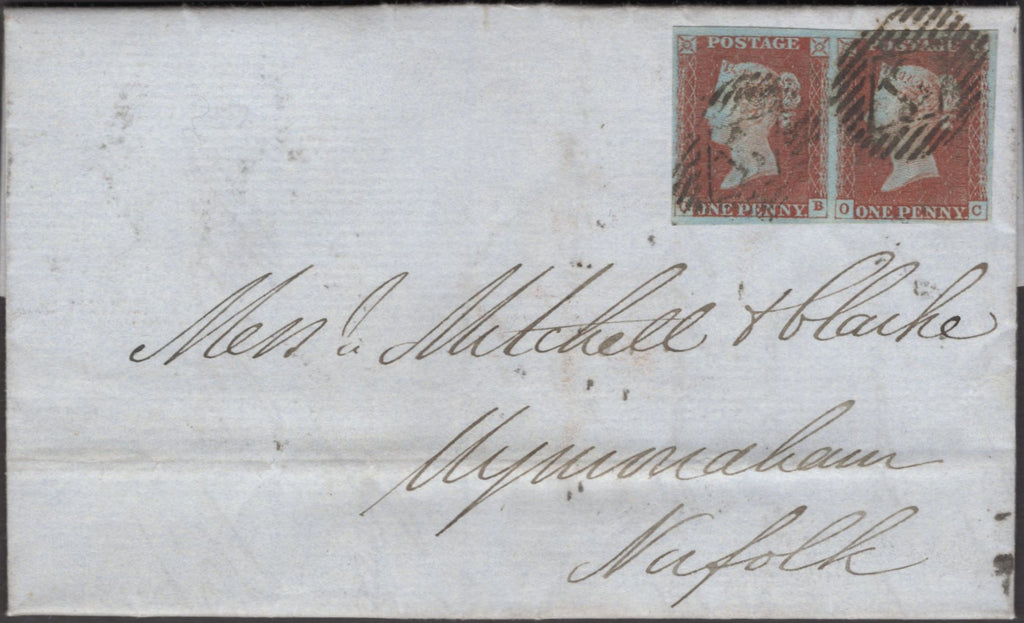 POSTAGE POSTAGE
ONE PENNY B O ONE PENNY C
Mess.rs Mitchell & Clarke
Wymondham
Norfolk